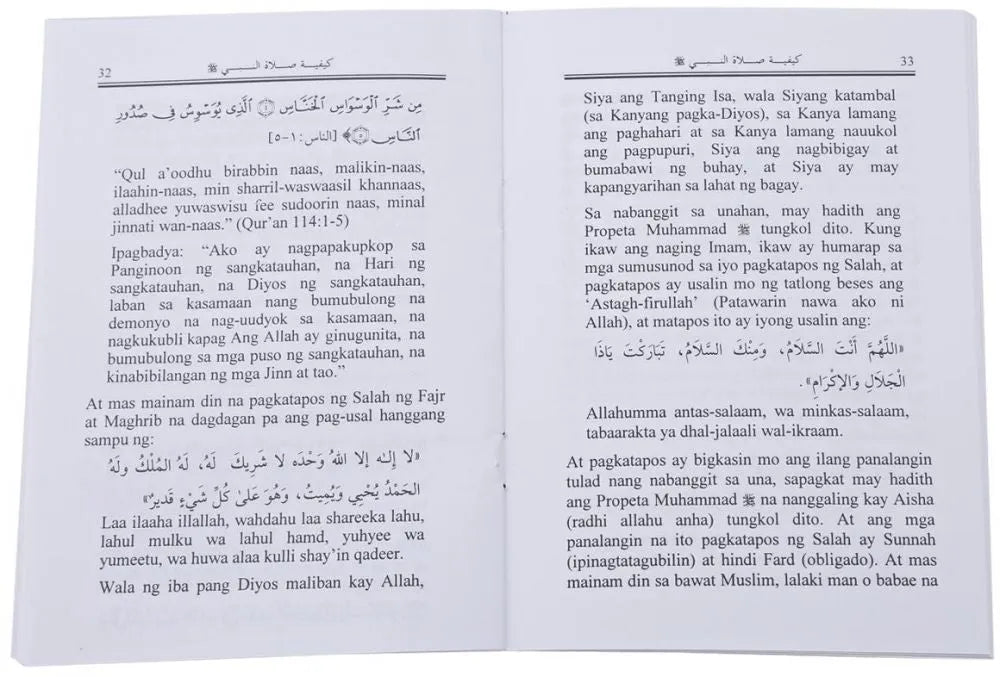 32
كيفية صلاة النبي ﷺ
مِن شَرِّ ٱلْوَسْوَاسِ ٱلْخَنَّاسِ ﴿٤﴾ ٱلَّذِى يُوَسْوِسُ فِى صُدُورِ
ٱلنَّاسِ ﴿٥﴾﴾ [الناس: ١-٥]
“Qul a’oodhu birabbin naas, malikin-naas,
ilaahin-naas, min sharril-waswaasil khannaas,
alladhee yuwaswisu fee sudoorin naas, minal
jinnati wan-naas.” (Qur’an 114:1-5)
Ipagbadya: “Ako ay nagpapakupkop sa
Panginoon ng sangkatauhan, na Hari ng
sangkatauhan, na Diyos ng sangkatauhan,
laban sa kasamaan nang bumubulong na
demonyo na nag-uudyok sa kasamaan, na
nagkukubli kapag Ang Allah ay ginugunita, na
bumubulong sa mga puso ng sangkatauhan, na
kinabibilangan ng mga Jinn at tao.”
At mas mainam din na pagkatapos ng Salah ng Fajr
at Maghrib na dagdagan pa ang pag-usal hanggang
sampu ng:
«لا إِلـٰه إلا اللهُ وَحْدَه لا شَرِيكَ لَهُ، لَهُ المُلْكُ ولَهُ
الحَمْدُ يُحْيِي وَيُمِيتُ، وهُوَ عَلىٰ كُلِّ شَيْءٍ قَدِيرٌ»
Laa ilaaha illallah, wahdahu laa shareeka lahu,
lahul mulku wa lahul hamd, yuhyee wa
yumeetu, wa huwa alaa kulli shay’in qadeer.
Wala ng iba pang Diyos maliban kay Allah,
كيفية صلاة النبي ﷺ
33
Siya ang Tanging Isa, wala Siyang katambal
(sa Kanyang pagka-Diyos), sa Kanya lamang
ang paghahari at sa Kanya lamang nauukol
ang pagpupuri, Siya ang nagbibigay at
bumabawi ng buhay, at Siya ay may
kapangyarihan sa lahat ng bagay.
Sa nabanggit sa unahan, may hadith ang
Propeta Muhammad ﷺ tungkol dito. Kung
ikaw ang naging Imam, ikaw ay humarap sa
mga sumusunod sa iyo pagkatapos ng Salah, at
pagkatapos ay usalin mo ng tatlong beses ang
‘Astagh-firullah’ (Patawarin nawa ako ni
Allah), at matapos ito ay iyong usalin ang:
«اللَّهُمَّ أَنْتَ السَّلَامُ، وَمِنْكَ السَّلَامُ، تَبَارَكْتَ يَاذَا
الْجَلَالِ وَالإِكْرَامِ».
Allahumma antas-salaam, wa minkas-salaam,
tabaarakta ya dhal-jalaali wal-ikraam.
At pagkatapos ay bigkasin mo ang ilang panalangin
tulad nang nabanggit sa una, sapagkat may hadith
ang Propeta Muhammad ﷺ na nanggaling kay Aisha
(radhi allahu anha) tungkol dito. At ang mga
panalangin na ito pagkatapos ng Salah ay Sunnah
(ipinagtatagubilin) at hindi Fard (obligado). At mas
mainam din sa bawat Muslim, lalaki man o babae na